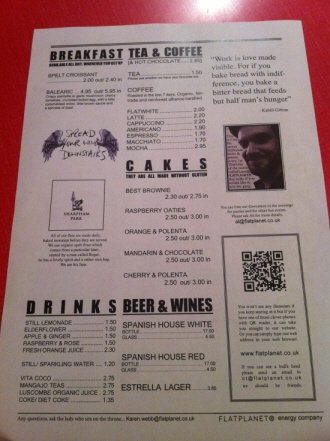 BREAKFAST
AVAILABLE ALL DAY, WHENEVER YOU GET UP
SPELT CROISSANT
2.00 out/ 2.40 in
BALEARIC ... 4.95 out/ 5.95 in
SPREAD
YOUR WINGS
DOWNSTAIRS
TEA & COFFEE
(& HOT CHOCOLATE ... 2.80)
TEA 1.50
COFFEE
Roasted in the last 7 days. Organic, fairtrade and rainforest alliance certified
FLATWHITE 2.00
LATTE 2.20
CAPPUCCINO 2.20
AMERICANO 1.90
ESPRESSO 1.70
MACCHIATO 1.70
MOCHA 2.95
"Work is love made
visible. For if you
bake bread with indif-
ference, you bake a
bitter bread that feeds
but half man's hunger"
- Kahlil Gibran
CAKES
THEY ARE ALL MADE WITHOUT GLUTEN
BEST BROWNIE
2.30 out/ 2.75 in
RASPBERRY OATIES
2.50 out/ 3.00 in
ORANGE & POLENTA
2.50 out/ 3.00 in
MANDARIN & CHOCOLATE
2.50 out/ 3.00 in
CHERRY & POLENTA
2.50 out/ 3.00 in
SHEEPHAM
PARK
al@flatplanet.co.uk
DRINKS
STILL LEMONADE 1.50
ELDERFLOWER 1.50
APPLE & GINGER 1.50
RASPBERRY & ROSE 1.50
FRESH ORANGE JUICE 2.30
STILL/ SPARKLING WATER 1.20
VITA COCO 2.75
MANGAJO TEAS 2.75
LUSCOMBE ORGANIC JUICE 2.75
COKE/ DIET COKE 1.35
BEER & WINES
SPANISH HOUSE WHITE
BOTTLE 17.00
GLASS 4.50
SPANISH HOUSE RED
BOTTLE 17.00
GLASS 4.50
ESTRELLA LAGER 3.85
www.flatplanet.co.uk
If you can use a buffs head
please send an email to
al@flatplanet.co.uk
we should be friends.
Any questions, ask the lady who sits on the throne... Karen.webb@flatplanet.co.uk
FLATPLANET® energy company